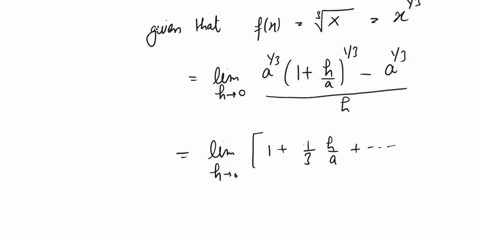 given that f(x) = ∛x = x^{1/3}
= lim_{h→0} \frac{a^{1/3} (1 + \frac{h}{a})^{1/3} − a^{1/3}}{h}
= lim_{h→0} [ 1 + \frac{1}{3} \frac{h}{a} + ---